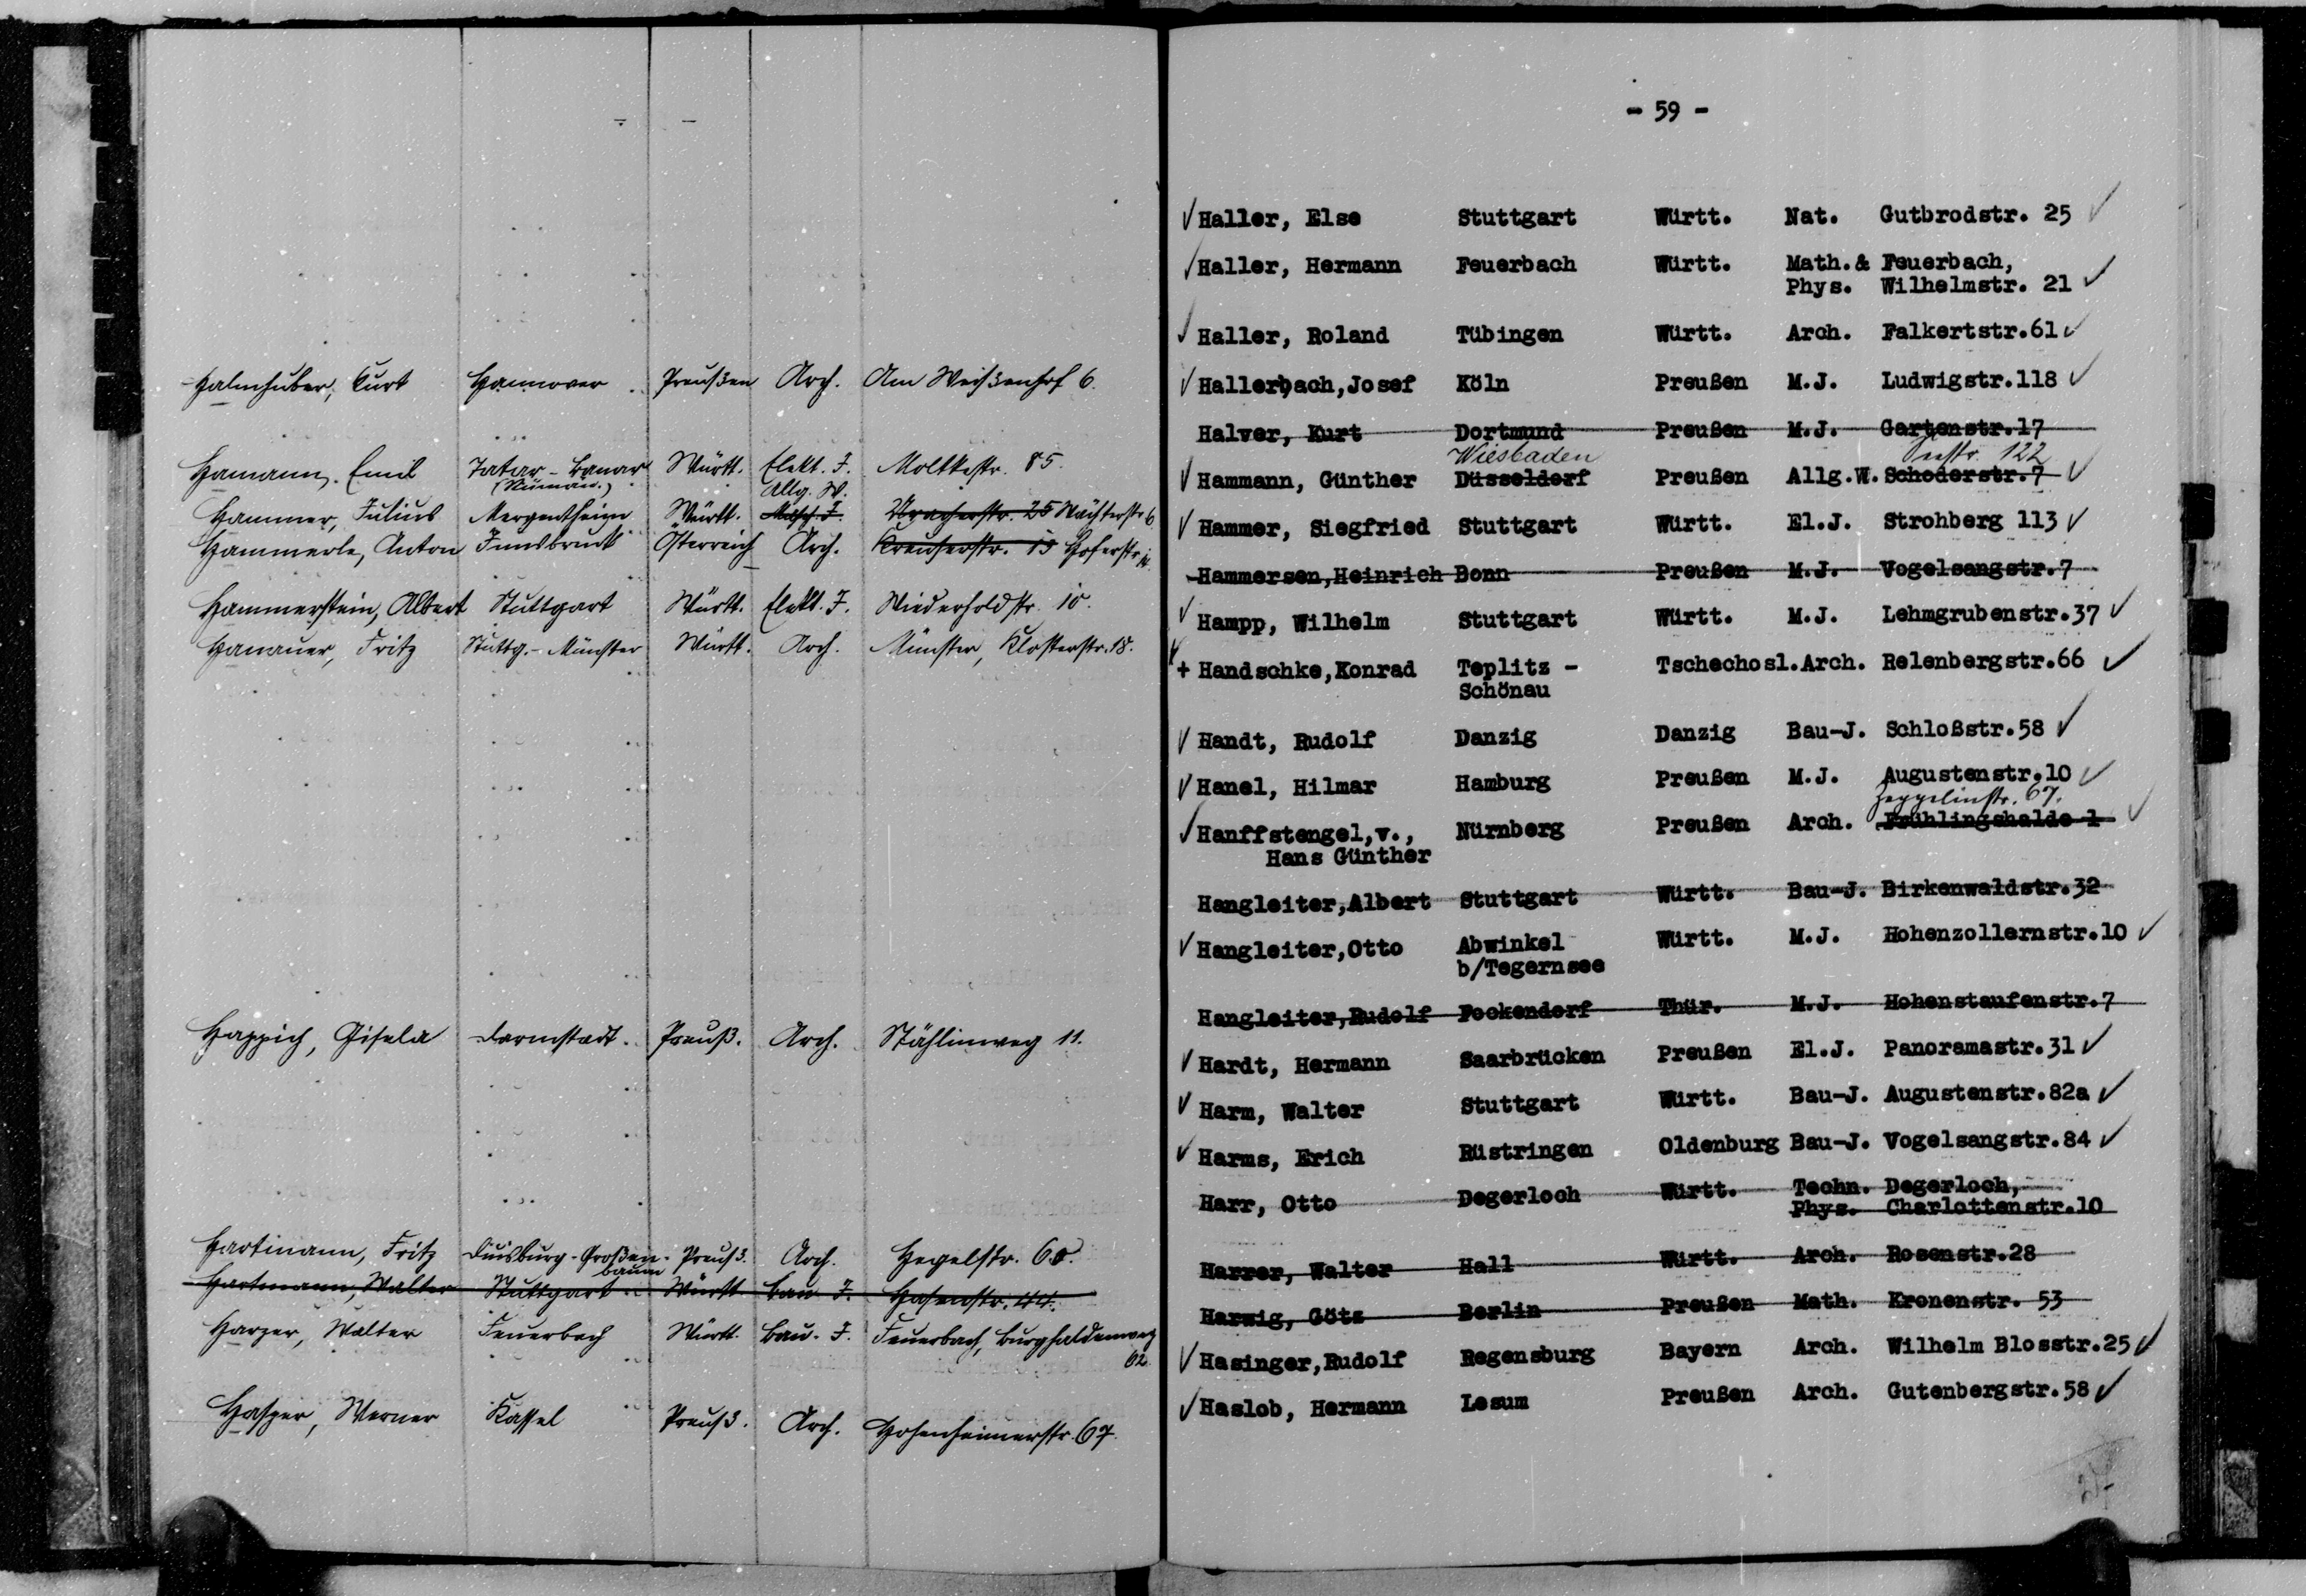 Halmhuber, Kurt Hannover Preußen Arch. Am Weißenhof 6.
Hamann, Emil Tatar-Bunar Württ. Elekt. I. Moltkestr. 85.
(Rumän.) Allg. W.
Hammer, Julius Mergentheim Württ. Masch. I. Uracherstr. 25 Wächterstr. 6
Hammerle, Anton Innsbruck Österreich Arch. Kreuserstr. 13 Hoferstr. 14.
Hammerstein, Albert Stuttgart Württ. Elekt. I. Wiederholdstr. 10.
Hanauer, Fritz Stuttg.-Münster Württ. Arch. Münster, Klosterstr. 18.
Happich, Gisela Darmstadt. Preuß. Arch. Stählinweg 11.
Hartmann, Fritz Duisburg-Großen- Preuß. Arch. Hegelstr. 60.
baum
Hartmann, Walter Stuttgart Württ Bau I. Hasenstr. 44.
Harzer, Walter Feuerbach Württ. Bau-I. Feuerbach, Burghaldenweg
62
Hasper, Werner Kassel Preuß. Arch. Hohenheimerstr. 67.
- 59 -
Haller, Else Stuttgart Württ. Nat. Gutbrodstr. 25
Haller, Hermann Feuerbach Württ. Math.& Feuerbach,
Phys. Wilhelmstr. 21
Haller, Roland Tübingen Württ. Arch. Falkertstr.61
Hallerbach,Josef Köln Preußen M.J. Ludwigstr.118
Halver, Kurt Dortmund Preußen M.J. Gartenstr.17
Wiesbaden Seestr. 122
Hammann, Günther Düsseldorf Preußen Allg.W. Schoderstr.7
Hammer, Siegfried Stuttgart Württ. El.J. Strohberg 113
Hammersen,Heinrich Bonn Preußen M.J. Vogelsangstr.7
Hampp, Wilhelm Stuttgart Württ. M.J. Lehmgrubenstr.37
+ Handschke,Konrad Teplitz - Tschechosl.Arch. Relenbergstr.66
Schönau
Handt, Rudolf Danzig Danzig Bau-J. Schloßstr.58
Hanel, Hilmar Hamburg Preußen M.J. Augustenstr.10
Zeppelinstr. 67.
Hanffstengel,v., Nürnberg Preußen Arch. Frühlingshalde 1
Hans Günther
Hangleiter,Albert Stuttgart Württ. Bau-J. Birkenwaldstr.32
Hangleiter,Otto Abwinkel Württ. M.J. Hohenzollernstr.10
b/Tegernsee
Hangleiter,Rudolf Fockendorf Thür. M.J. Hohenstaufenstr.7
Hardt, Hermann Saarbrücken Preußen El.J. Panoramastr.31
Harm, Walter Stuttgart Württ. Bau-J. Augustenstr.82a
Harms, Erich Rüstringen Oldenburg Bau-J. Vogelsangstr.84
Harr, Otto Degerloch Württ. Techn. Degerloch,
Phys. Charlottenstr.10
Harrer, Walter Hall Württ. Arch. Rosenstr.28
Harwig, Götz Berlin Preußen Math. Kronenstr. 53
Hasinger,Rudolf Regensburg Bayern Arch. Wilhelm Blosstr.25
Haslob, Hermann Lesum Preußen Arch. Gutenbergstr.58